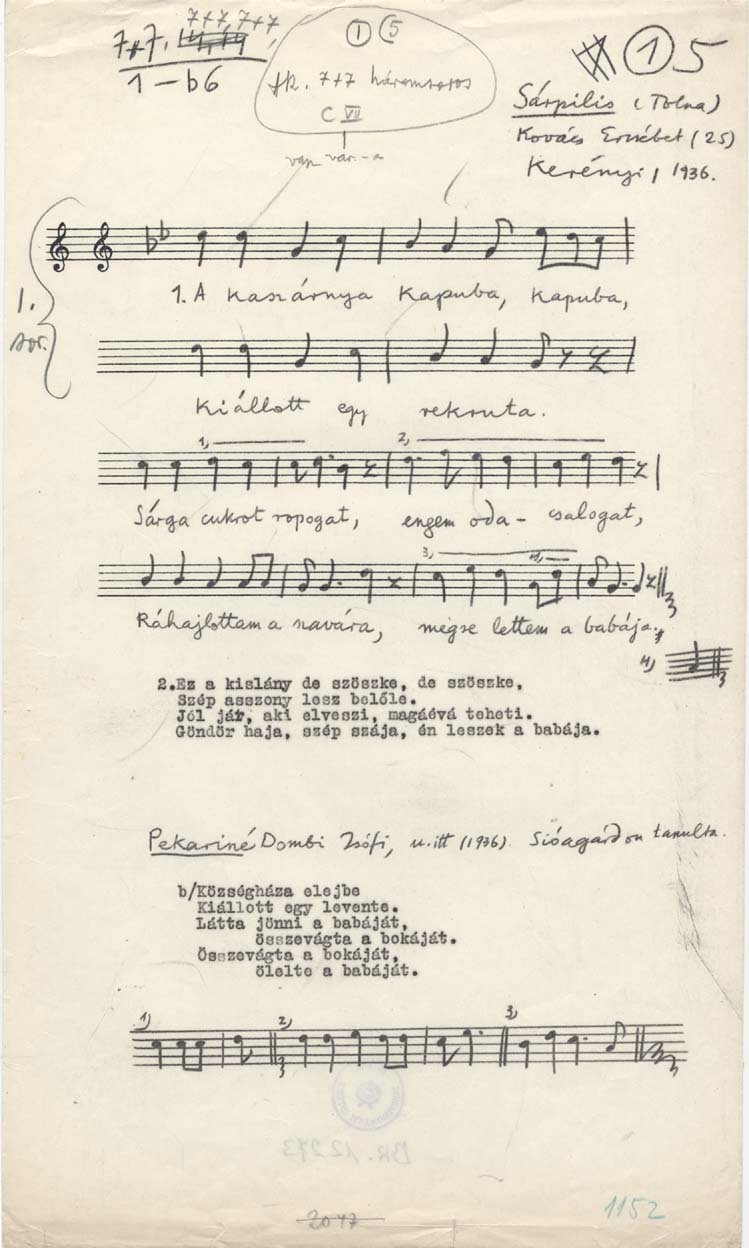 7+7, 7+7,
7+7. 14, 14
1–b6
① 5
fk. 7+7 háromsoros
C VII
van var.-a
① 5
Sárpilis (Tolna)
Kovács Erzsébet (25)
Kerényi, 1936.
1. sor.
1. A kaszárnya kapuba, kapuba,
Kiállott egy rekruta.
1, 2,
Sárga cukrot ropogat, engem oda- csalogat,
3, 4,
Ráhajlottam a szavára, mégse lettem a babája.
4,
2.Ez a kislány de szöszke, de szöszke,
Szép asszony lesz belőle.
Jól jár, aki elveszi, magáévá teheti.
Göndör haja, szép szája, én leszek a babája.
Pekariné Dombi Zsófi, u.itt (1936). Sióagárdon tanulta.
b/Községháza elejbe
Kiállott egy levente.
Látta jönni a babáját,
összevágta a bokáját.
Összevágta a bokáját,
ölelte a babáját.
1, 2, 3,
BR. 12273
2047
1152